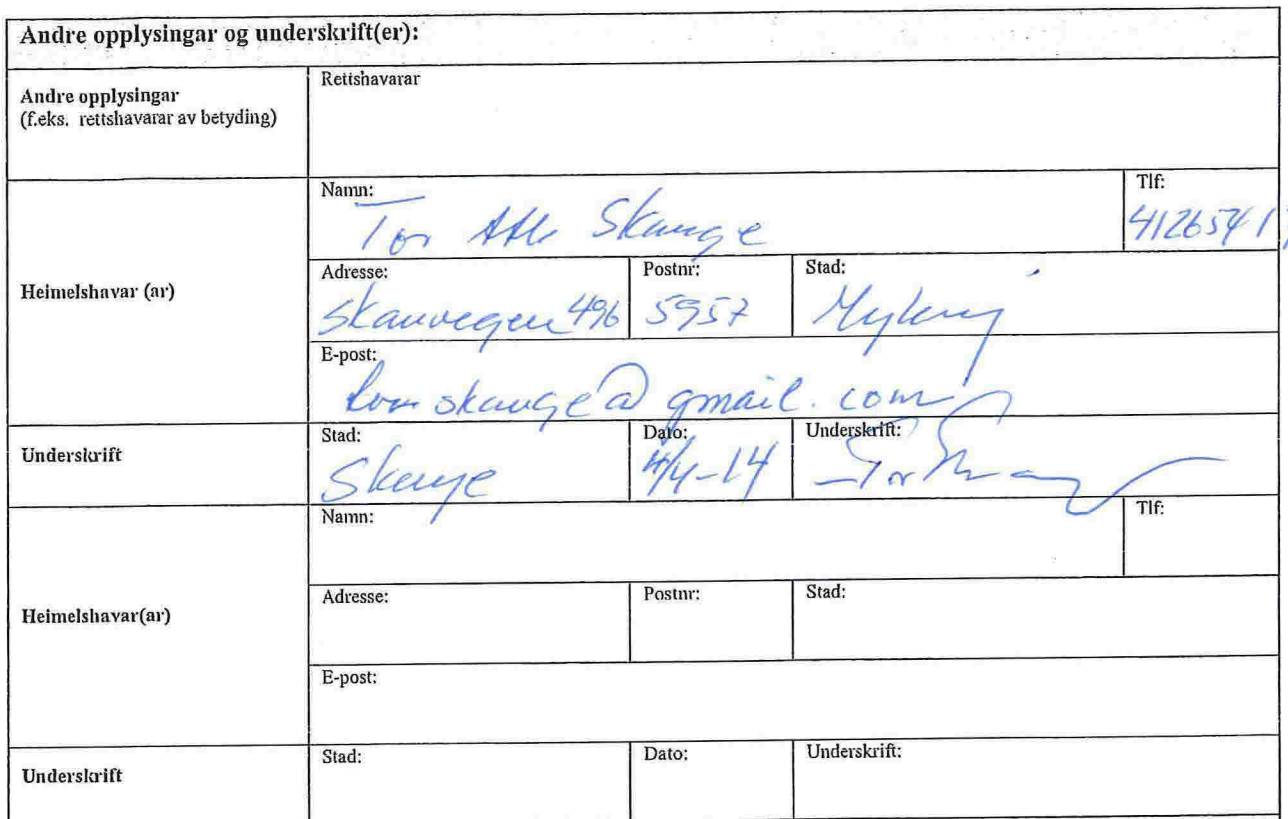 Andre opplysingar og underskrift(er):
Andre opplysingar
(f.eks. rettshavarar av betyding)
Rettshavarar
Heimelshavar (ar)
Namn:
Tor Atle Skauge
Tlf:
4126541
Adresse:
Skauvegen 496
Postnr:
5957
Stad:
Myking
E-post:
skauge@gmail.com
Underskrift
Stad:
Skauge
Dato:
4/4-14
Underskrift:
Heimelshavar(ar)
Namn:
Tlf:
Adresse:
Postnr:
Stad:
E-post:
Underskrift
Stad:
Dato:
Underskrift: